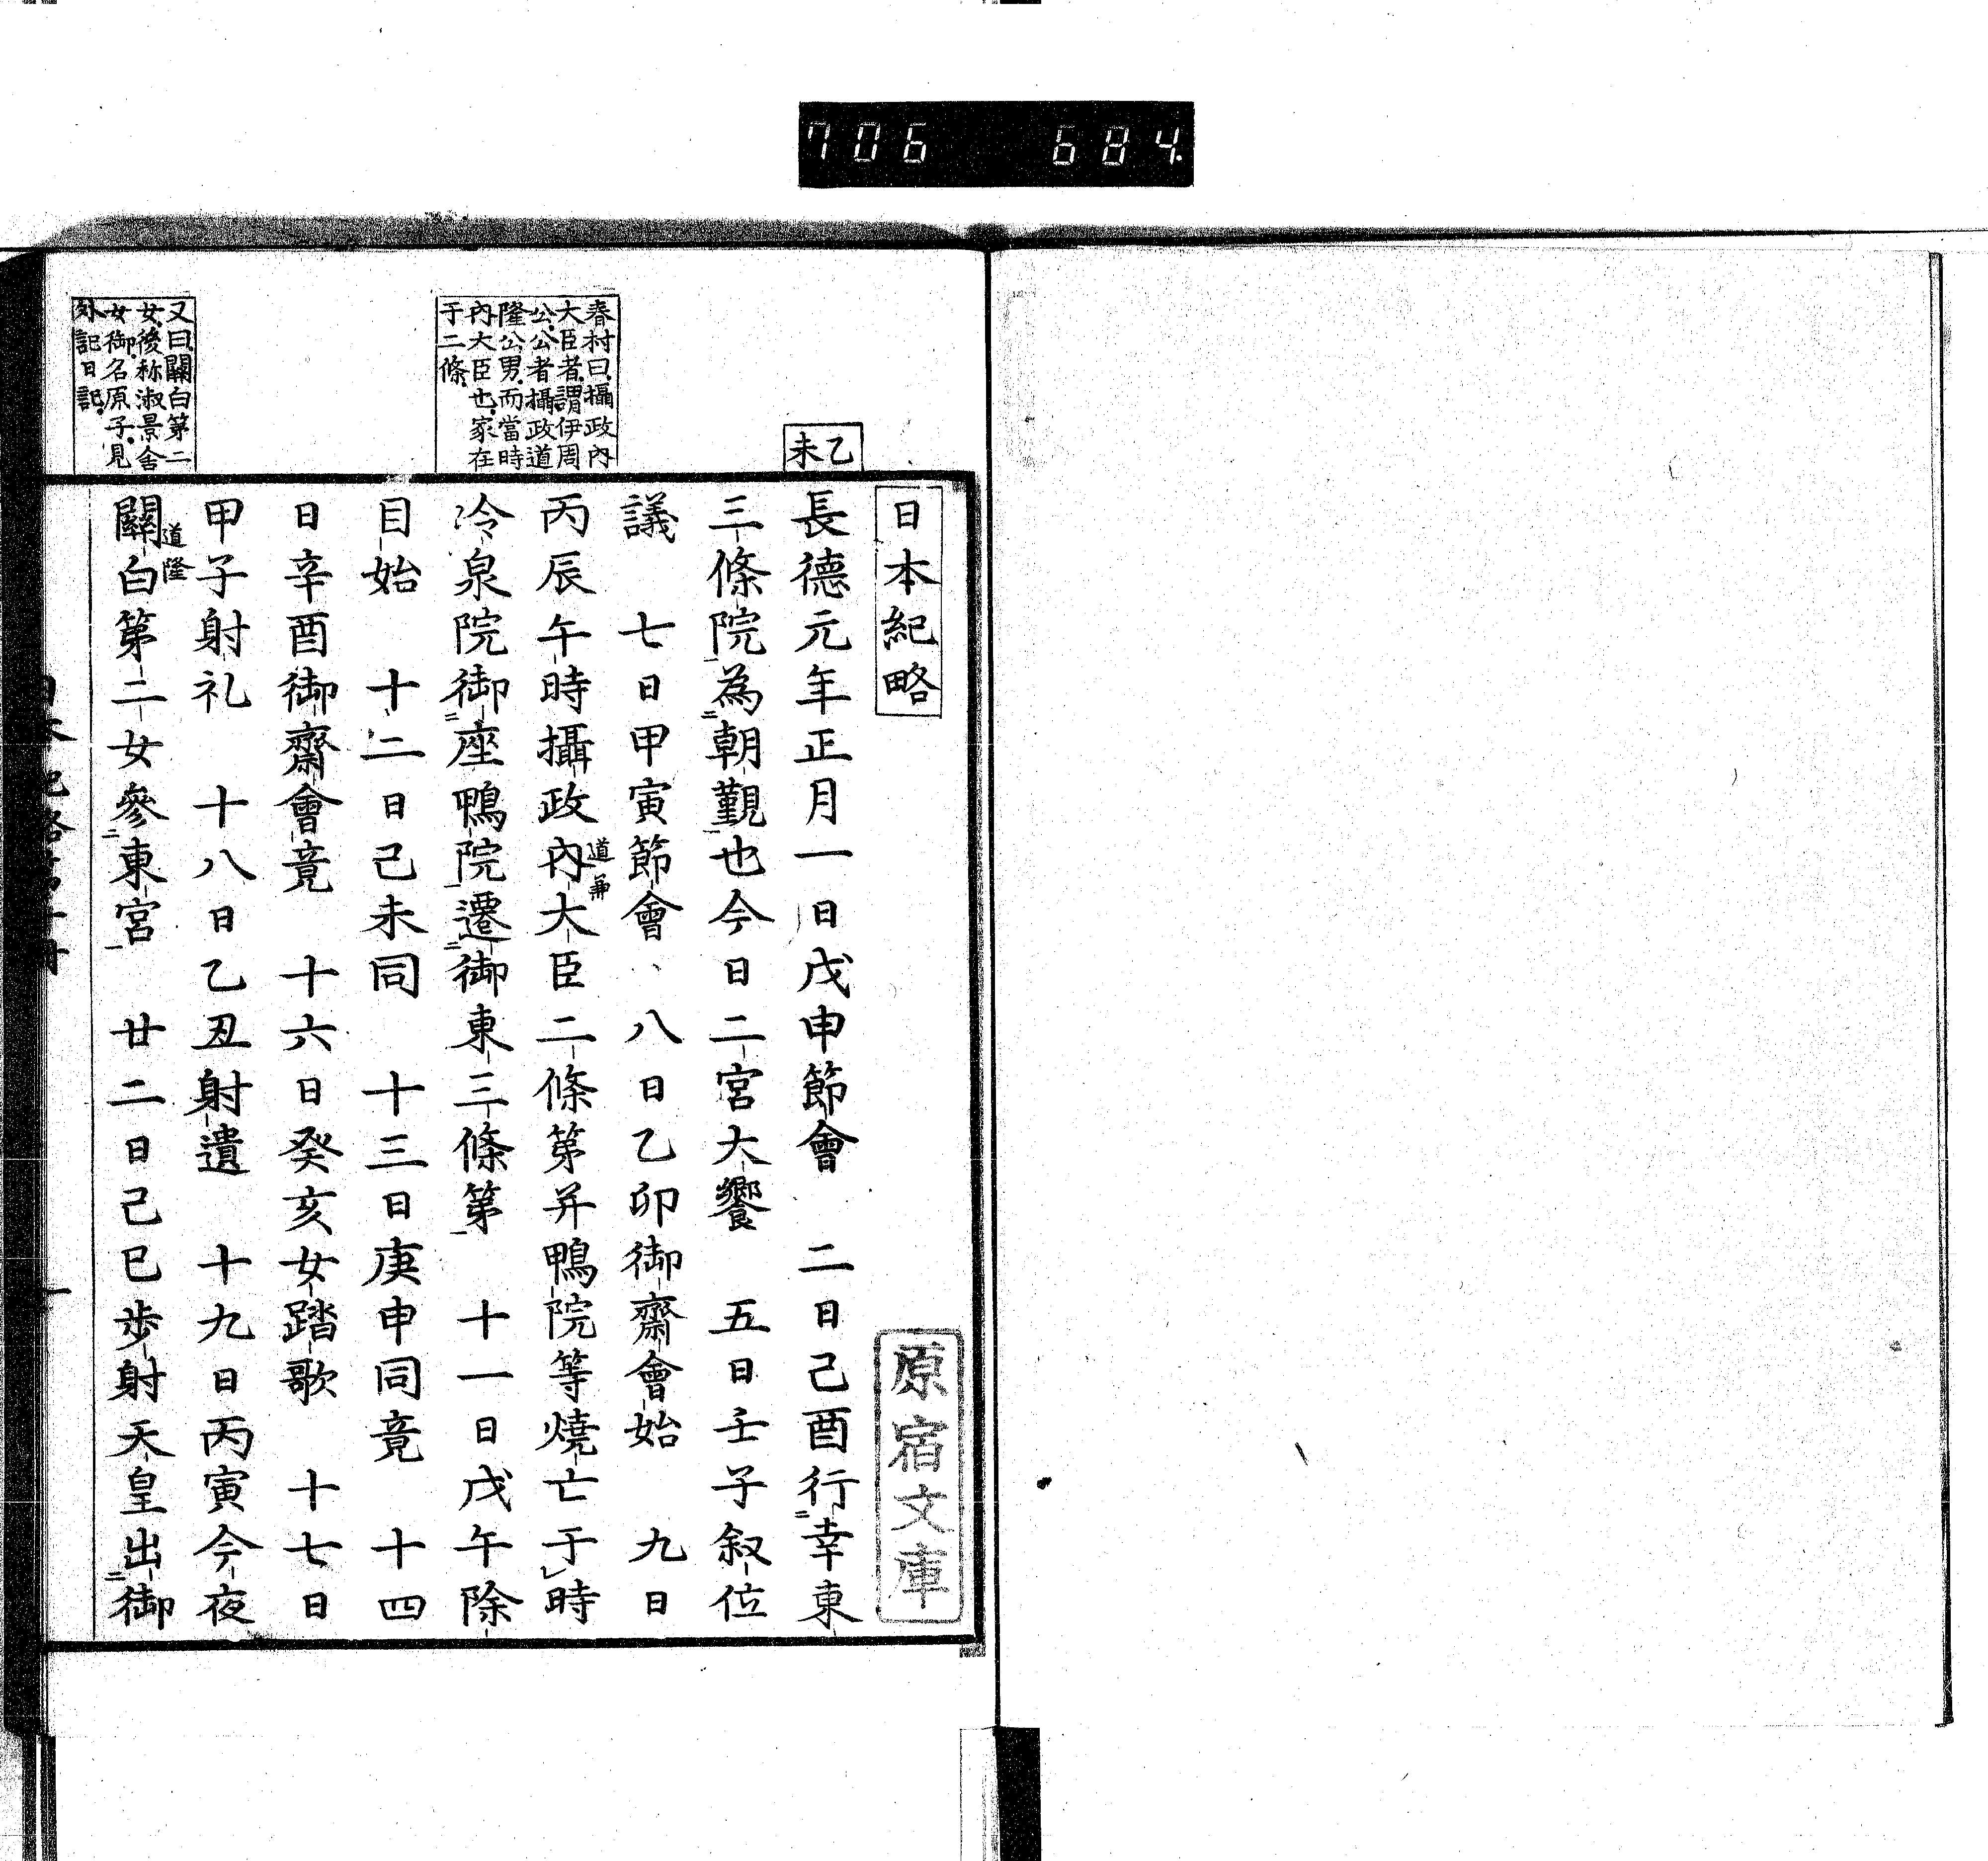 706 684
日本紀略
原宿文庫
乙未
長德元年正月一日戊申節會　二日己酉行幸東
三條院為朝覲也今日二宮大饗　五日壬子叙位
議　七日甲寅節會　八日乙卯御齋會始　九日
丙辰午時攝政內大臣二條第并鴨院等燒亡于時
道兼
冷泉院御座鴨院遷御東三條第　十一日戊午除
目始　十二日己未同　十三日庚申同竟　十四
日辛酉御齋會竟　十六日癸亥女踏歌　十七日
甲子射礼　十八日乙丑射遺　十九日丙寅今夜
道隆
關白第二女參東宮　廿二日己巳步射天皇出御
春村曰攝政內
大臣者謂伊周
公公者攝政道
隆公男而當時
內大臣也家在
于二條
又曰關白第二
女後称淑景舍
女御名原子見
外記日記